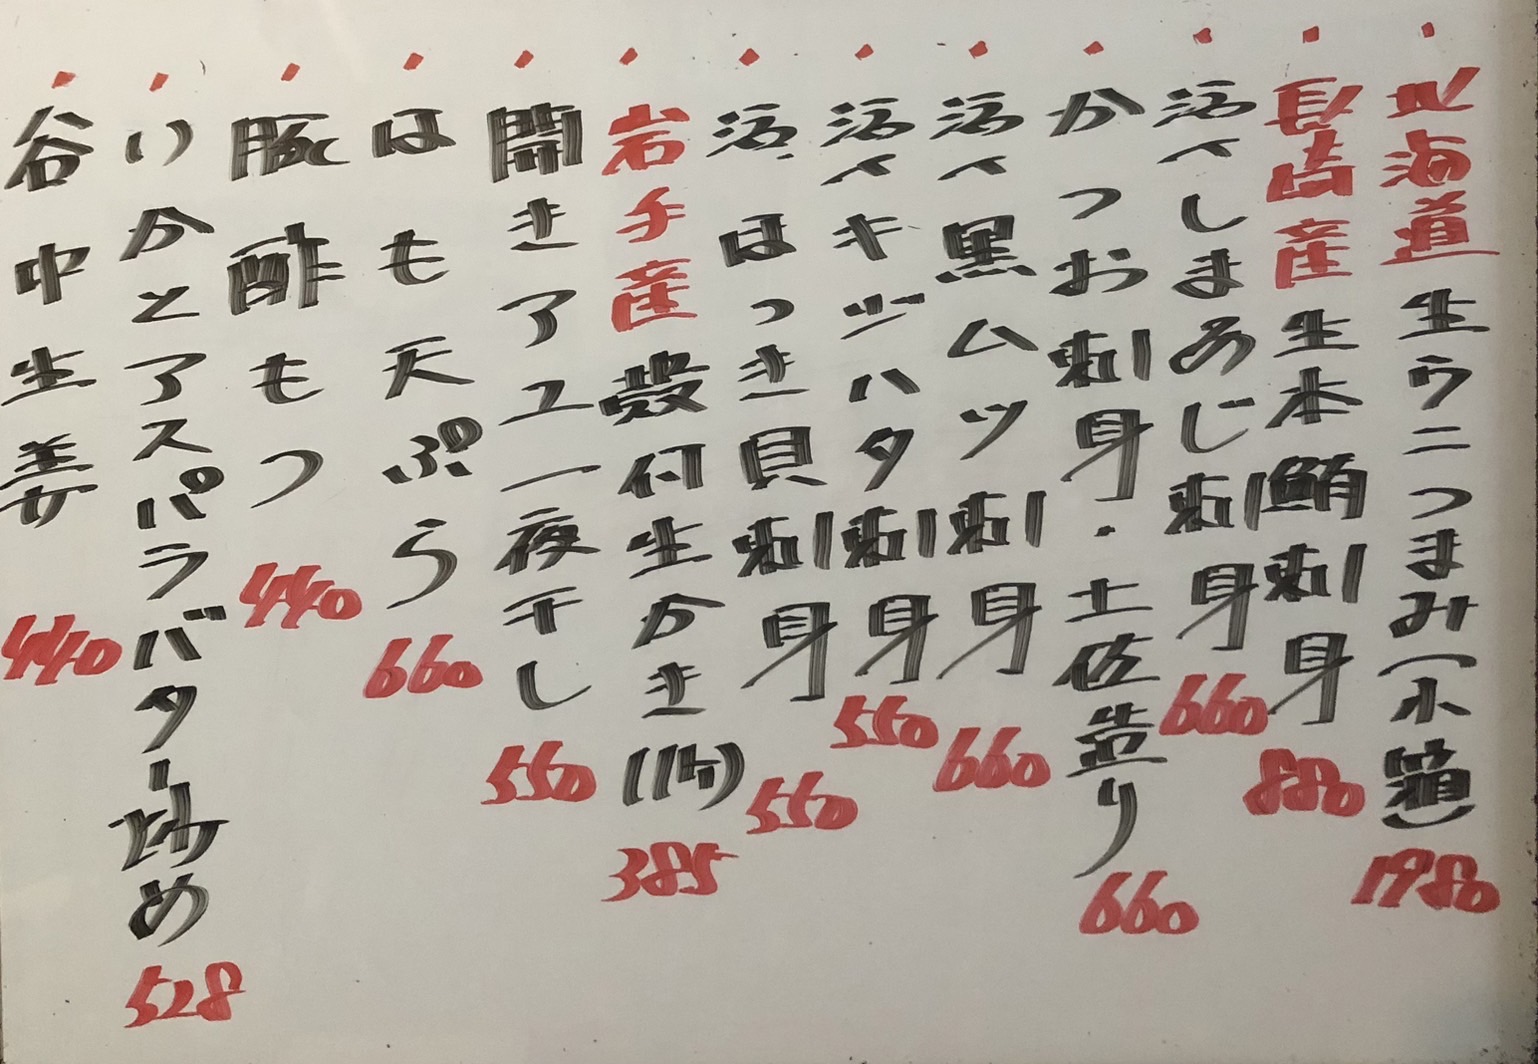 北海道生ウニつまみ(小箱) 1980
長崎産生本鮪刺身 880
活〆しまあじ刺身 660
かつお刺身・土佐造り 660
活〆黒ムツ刺身 660
活〆キジハタ刺身 550
活ほっき貝刺身 550
岩手産殻付生かき(1ケ) 385
開きアユ一夜干し 550
はも天ぷら 660
豚酢もつ 440
いかとアスパラバター炒め 528
谷中生姜 440